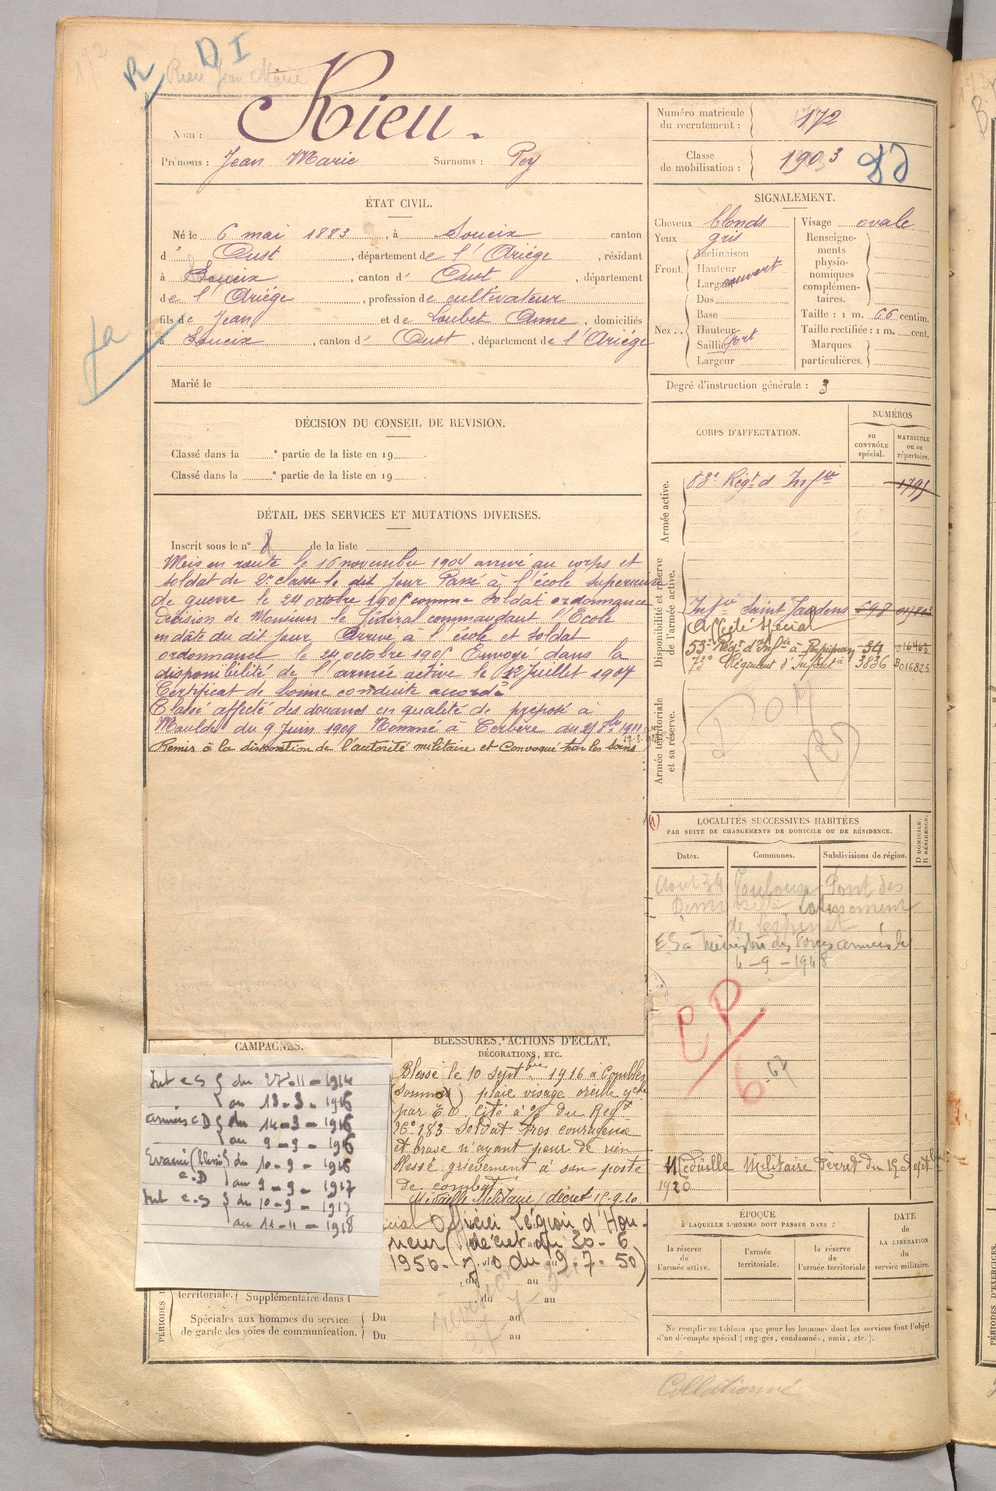 R DI
Rieu Jean Marie
Nom : Rieu.
Prénoms : Jean Marie Surnoms : Pey
Numéro matricule du recrutement : 172
Classe de mobilisation : 1903
ÉTAT CIVIL.
Né le 6 mai 1883, à Soueix canton
d' Oust, département de l'Ariège, résidant
à Soueix, canton d' Oust, département
de l'Ariège, profession de cultivateur
fils de Jean et de Loubet Anne, domiciliés
à Soueix, canton d' Oust, département de l'Ariège
Marié le
SIGNALEMENT.
Cheveux blonds
Yeux gris
Front. Inclinaison
Hauteur
Largeur couvert
Nez. Dos
Base
Hauteur
Saillie fort
Largeur
Visage ovale
Renseignements physionomiques complémentaires.
Taille : 1 m. 66 centim.
Taille rectifiée : 1 m. cent.
Marques particulières.
Degré d'instruction générale : 3
DÉCISION DU CONSEIL DE REVISION.
Classé dans la e partie de la liste en 19
Classé dans la e partie de la liste en 19
DÉTAIL DES SERVICES ET MUTATIONS DIVERSES.
Inscrit sous le n° 8 de la liste
Mis en route le 16 novembre 1904 arrivé au corps et
soldat de 2e classe le dit jour Passé à l'école supérieure
de guerre le 24 octobre 1905 comme soldat ordonnance
Décision de Monsieur le Général commandant l'Ecole
en date du dit jour Arrivé à l'école et soldat
ordonnance le 24 octobre 1905 Envoyé dans la
disponibilité de l'armée active le 12 Juillet 1907
Certificat de bonne conduite accordé
Classé affecté des douanes en qualité de préposé à
Maulde du 9 Juin 1909 Nommé à Cerbère du
Remis à la disposition de l'autorité militaire et Convoqué par les soins
CORPS D'AFFECTATION.
NUMÉROS
AU CONTRÔLE spécial.
MATRICULE OU DE répertoire.
Armée active.
83e Régt d'Inftie 1791
Disponibilité et réserve de l'armée active.
Inftie Saint Gaudens 648
Affecté Spécial
53e Régt d'Inftie à Perpignan 34 016402
72e Régiment d'Infantie 3836 016825
Armée territoriale et sa réserve.
LOCALITÉS SUCCESSIVES HABITÉES
PAR SUITE DE CHANGEMENTS DE DOMICILE OU DE RÉSIDENCE.
Dates. Communes. Subdivisions de région. D DOMICILE. R RÉSIDENCE.
Aout 34 Toulouse Pont des
Demoiselles Lotissement
de l'espinet
ES à Ministère des Forces armées le
4-9-1948
CP
6-67
CAMPAGNES.
Int c S du 27-11-1914
au 13-3-1916
armées c D du 14-3-1916
au 9-9-1916
Evacué (blessé) du 10-9-1916
c.D au 9-9-1917
Int c.S du 10-9-1917
au 11-11-1918
BLESSURES, ACTIONS D'ÉCLAT,
DÉCORATIONS, ETC.
Blessé le 10 Septbre 1916 à Combles
(Somme) plaie visage oreille gche
par E O. Cité à l'O du Régt
N° 183 Soldat très courageux
et brave n'ayant peur de rien
blessé grièvement à son poste
de combat
Médaille Militaire (décret 15.9.20
Médaille Militaire Décret du 15 septbre
1920
Officier Légion d'Hon-
neur (décret du 30-6
1950. J.O du 9-7-50)
du au
du au
territoriale. Supplémentaire dans l'
Spéciales aux hommes du service Du au
de garde des voies de communication. Du au
PÉRIODES
ÉPOQUE
À LAQUELLE L'HOMME DOIT PASSER DANS :
la réserve de l'armée active.
l'armée territoriale.
la réserve de l'armée territoriale
DATE de LA LIBÉRATION du service militaire.
Ne remplir ce tableau que pour les hommes dont les services font l'objet
d'un décompte spécial (engagés, condamnés, omis, etc.).
Collationné
PÉRIODES D'EXERCICES.